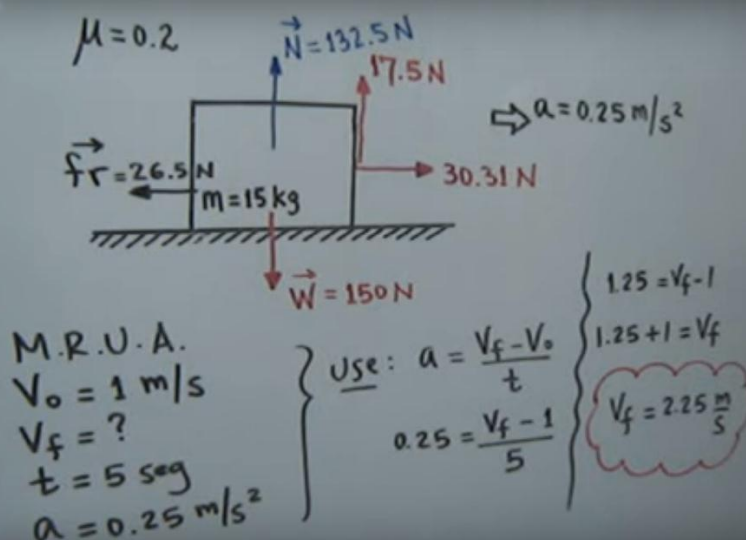 μ = 0.2
N = 132.5 N
17.5 N
a = 0.25 m/s²
fr = 26.5 N
30.31 N
m = 15 kg
W = 150 N
M.R.U.A.
V₀ = 1 m/s
Vf = ?
t = 5 seg
a = 0.25 m/s²
Use: a = (Vf - V₀) / t
0.25 = (Vf - 1) / 5
1.25 = Vf - 1
1.25 + 1 = Vf
Vf = 2.25 m/s